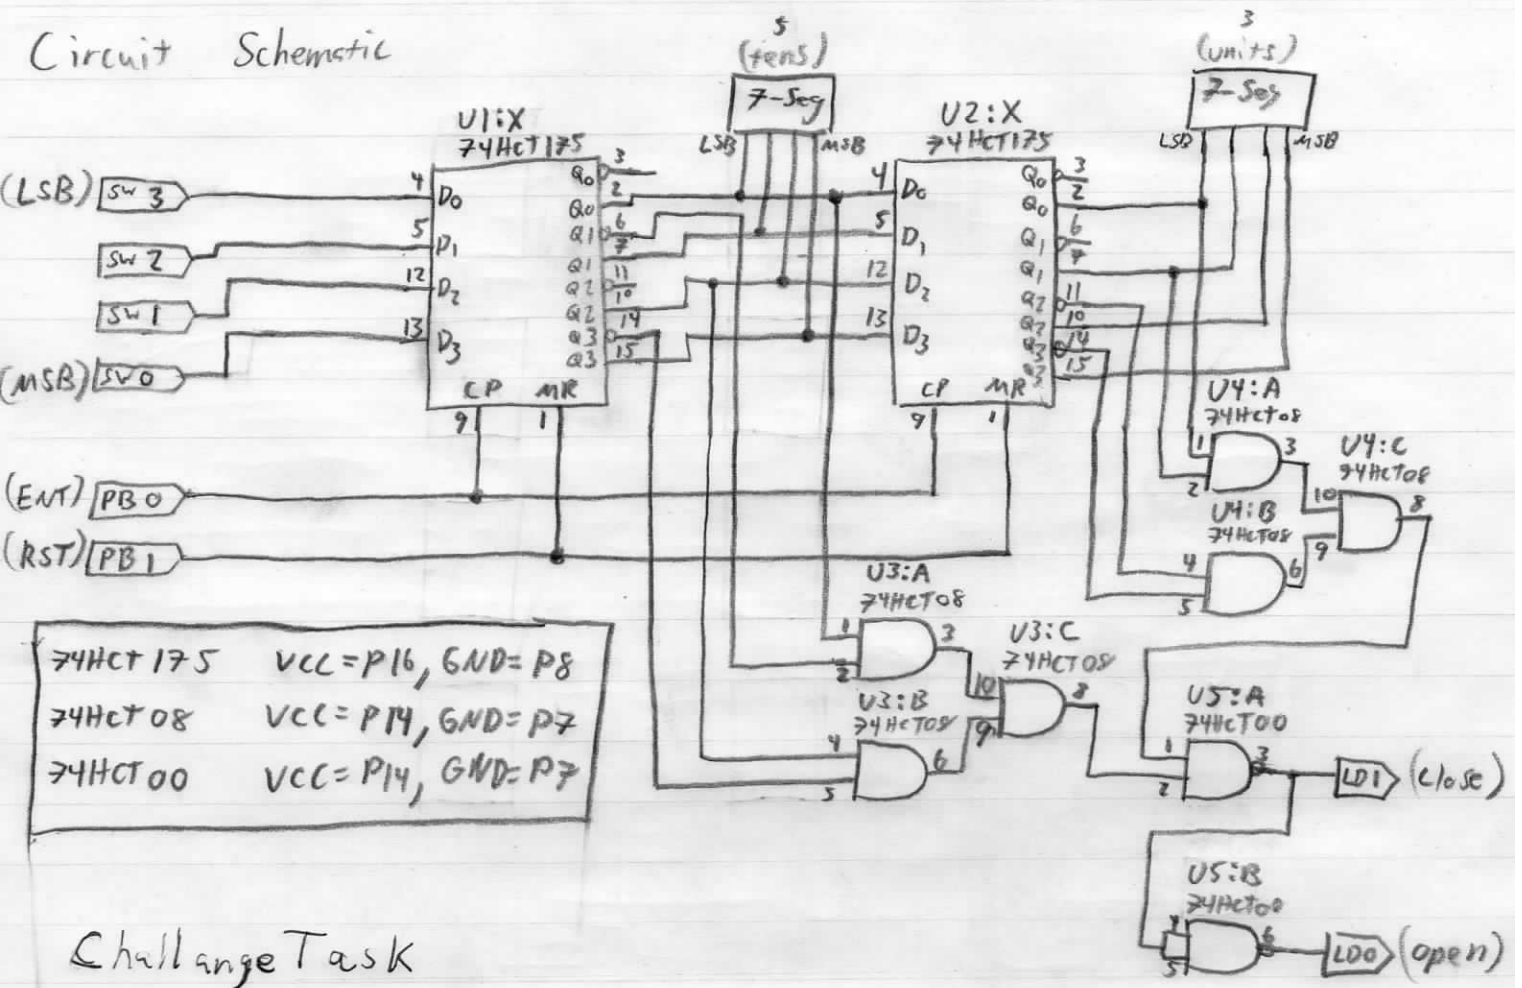 Circuit Schematic
5
(tens)
7-Seg
LSB
MSB
3
(units)
7-Seg
LSB
MSB
U1:X
74HCT175
(LSB) SW 3
SW 2
SW 1
(MSB) SW 0
4 D0
5 D1
12 D2
13 D3
Q0 3
Q0 2
Q1 6
Q1 7
Q2 11
Q2 10
Q3 14
Q3 15
CP MR
9 1
U2:X
74HCT175
4 D0
5 D1
12 D2
13 D3
Q0 3
Q0 2
Q1 6
Q1 7
Q2 11
Q2 10
Q3 14
Q3 15
CP MR
9 1
(ENT) PB 0
(RST) PB 1
U4:A
74HCT08
1
2
3
U4:B
74HCT08
4
5
6
U4:C
74HCT08
10
9
8
U3:A
74HCT08
1
2
3
U3:B
74HCT08
4
5
6
U3:C
74HCT08
10
9
8
U5:A
74HCT00
1
2
3
LD1 (close)
U5:B
74HCT00
4
5
6
LD0 (open)
74HCT175 VCC=P16, GND=P8
74HCT08 VCC=P14, GND=P7
74HCT00 VCC=P14, GND=P7
Challange Task